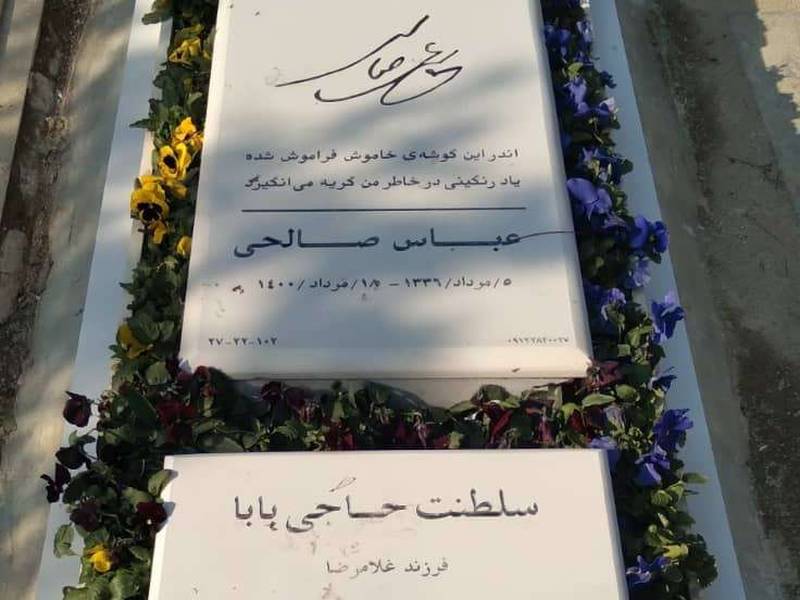 عباس صالحی
اندر این گوشه‌ی خاموش فراموش شده
یاد رنگینی در خاطر من گریه می‌انگیزد
عباس صالحی
۵/مرداد/۱۳۳۶ - ۱۸/مرداد/۱۴۰۰
۲۷-۲۲-۱۰۲
سلطنت حاجی بابا
فرزند غلامرضا